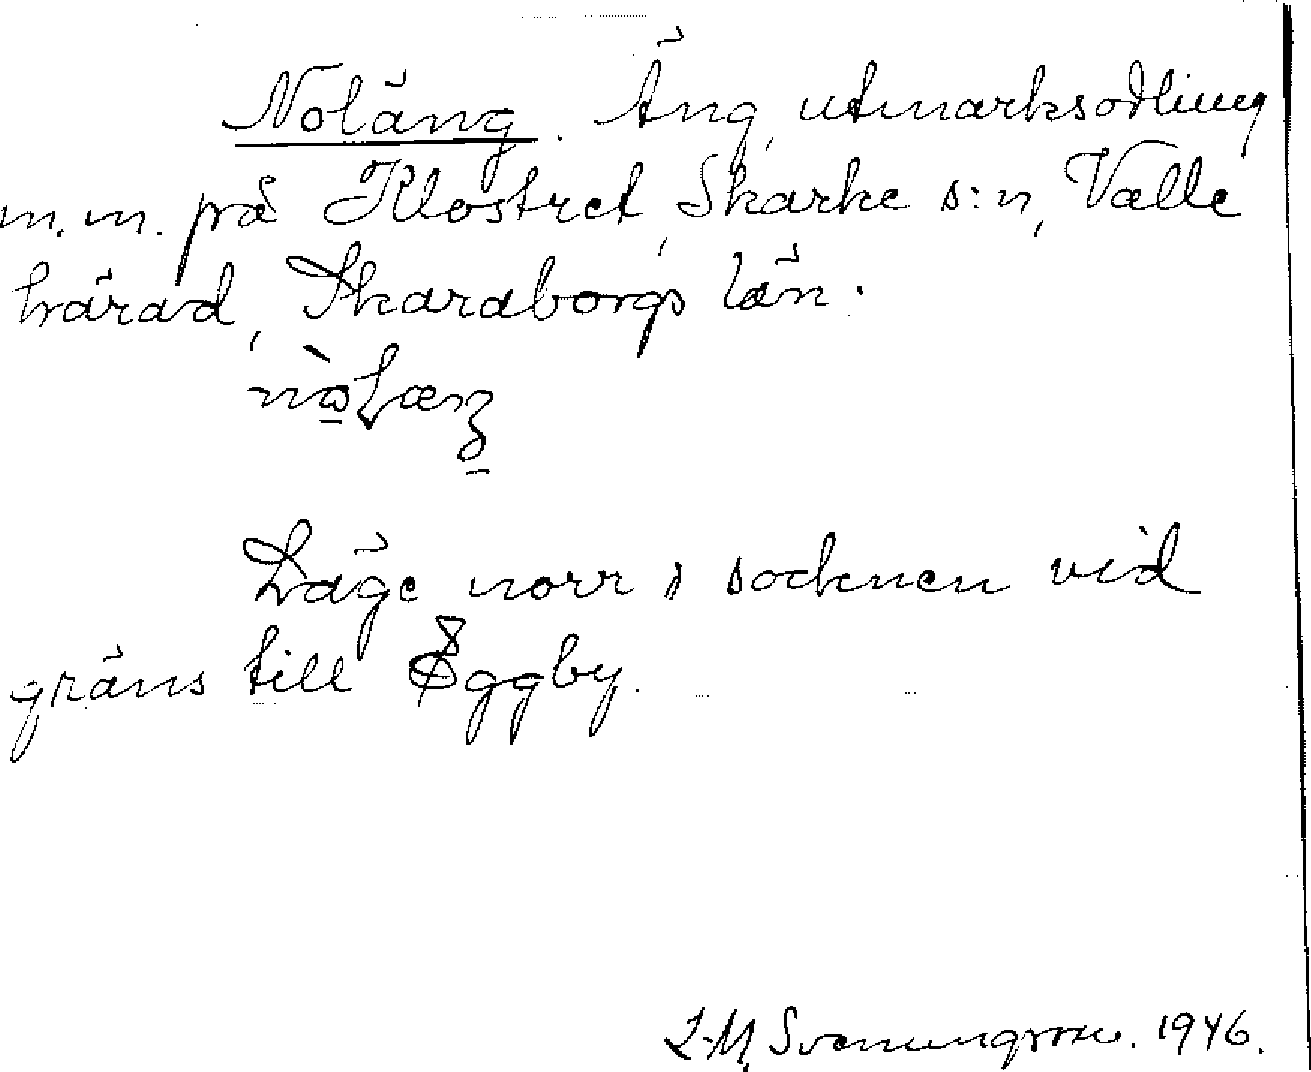 Noläng. Äng, utmarksodling
m.m. på Klostret, Skarke s:n, Valle
härad, Skaraborgs län.
Läge norr i socknen vid
gräns till Eggby.
L-M. Svenungsson. 1946.